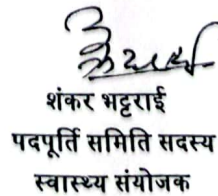 शंकर भट्टराई
पदपूर्ति समिति सदस्य
स्वास्थ्य संयोजक